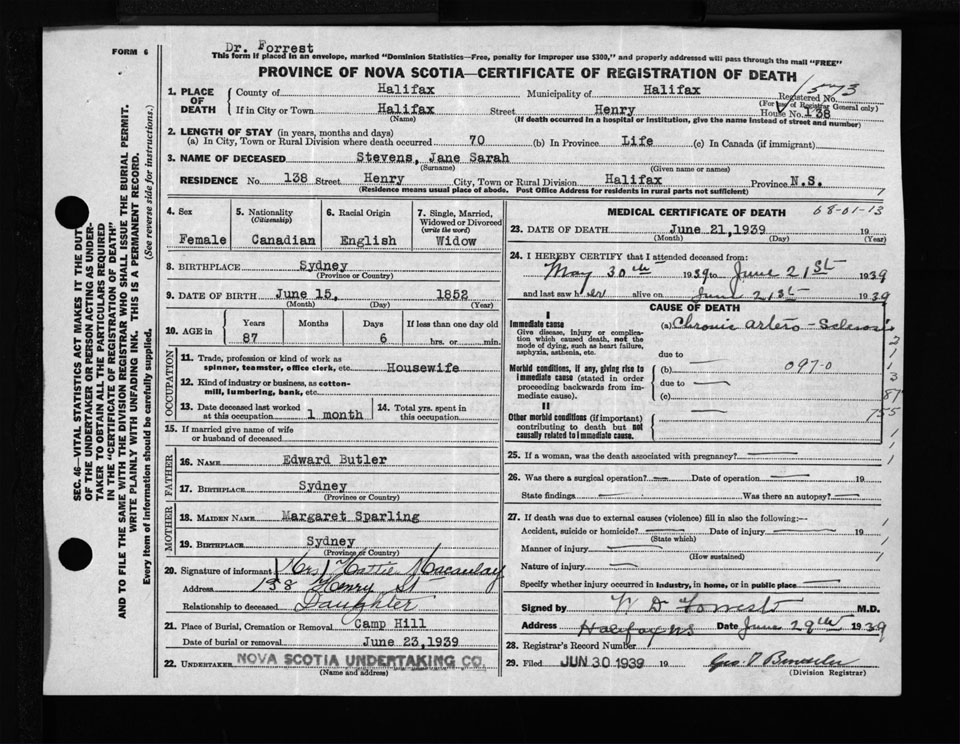 FORM 6
Dr. Forrest
This form if placed in an envelope, marked "Dominion Statistics—Free, penalty for improper use $300," and properly addressed will pass through the mail "FREE"
PROVINCE OF NOVA SCOTIA—CERTIFICATE OF REGISTRATION OF DEATH
1. PLACE OF DEATH
County of Halifax Municipality of Halifax Registered No. 1573
(For use of Registrar General only)
If in City or Town Halifax Street Henry House No. 138
(Name) (If death occurred in a hospital or institution, give the name instead of street and number)
2. LENGTH OF STAY (in years, months and days)
(a) In City, Town or Rural Division where death occurred 70 (b) In Province Life (c) In Canada (if immigrant)
3. NAME OF DECEASED Stevens, Jane Sarah
(Surname) (Given name or names)
RESIDENCE No. 138 Street Henry City, Town or Rural Division Halifax Province N.S.
(Residence means usual place of abode. Post Office Address for residents in rural parts not sufficient)
4. Sex
Female
5. Nationality
(Citizenship)
Canadian
6. Racial Origin
English
7. Single, Married, Widowed or Divorced
(write the word)
Widow
8. BIRTHPLACE Sydney
(Province or Country)
9. DATE OF BIRTH June 15, 1852
(Month) (Day) (Year)
10. AGE in
Years Months Days If less than one day old
87 6 hrs. or min.
OCCUPATION
11. Trade, profession or kind of work as
spinner, teamster, office clerk, etc. Housewife
12. Kind of industry or business, as cotton-
mill, lumbering, bank, etc.
13. Date deceased last worked
at this occupation 1 month
14. Total yrs. spent in
this occupation
15. If married give name of wife
or husband of deceased
FATHER
16. NAME Edward Butler
17. BIRTHPLACE Sydney
(Province or Country)
MOTHER
18. MAIDEN NAME Margaret Sparling
19. BIRTHPLACE Sydney
(Province or Country)
20. Signature of informant (Mrs) Hattie Macaulay
Address 138 Henry St
Relationship to deceased Daughter
21. Place of Burial, Cremation or Removal Camp Hill
Date of burial or removal June 23, 1939
22. UNDERTAKER NOVA SCOTIA UNDERTAKING CO.
(Name and address)
MEDICAL CERTIFICATE OF DEATH 68-01-13
23. DATE OF DEATH June 21, 1939 19
(Month) (Day) (Year)
24. I HEREBY CERTIFY that I attended deceased from:
May 30th 1939 to June 21st 1939
and last saw her alive on June 21st 1939
CAUSE OF DEATH
I
Immediate cause
Give disease, injury or complica-
tion which caused death, not the
mode of dying, such as heart failure,
asphyxia, asthenia, etc.
(a) Chronic Artero-Sclerosis
due to
Morbid conditions, if any, giving rise to
immediate cause (stated in order
proceeding backwards from im-
mediate cause).
(b) 097-0
due to
(c)
II
Other morbid conditions (if important)
contributing to death but not
causally related to immediate cause.
25. If a woman, was the death associated with pregnancy?
26. Was there a surgical operation? Date of operation 19
State findings Was there an autopsy?
27. If death was due to external causes (violence) fill in also the following:—
Accident, suicide or homicide? Date of injury 19
(State which)
Manner of injury
(How sustained)
Nature of injury
Specify whether injury occurred in industry, in home, or in public place
Signed by W D Forrest M.D.
Address Halifax NS Date June 29th 1939
28. Registrar's Record Number
29. Filed JUN 30 1939 19
(Division Registrar)
SEC. 46—VITAL STATISTICS ACT MAKES IT THE DUTY
OF THE UNDERTAKER OR PERSON ACTING AS UNDER-
TAKER TO OBTAIN ALL THE PARTICULARS REQUIRED
IN THE "CERTIFICATE OF REGISTRATION OF DEATH"
AND TO FILE THE SAME WITH THE DIVISION REGISTRAR WHO SHALL ISSUE THE BURIAL PERMIT.
WRITE PLAINLY WITH UNFADING INK. THIS IS A PERMANENT RECORD.
Every item of information should be carefully supplied. (See reverse side for instructions.)